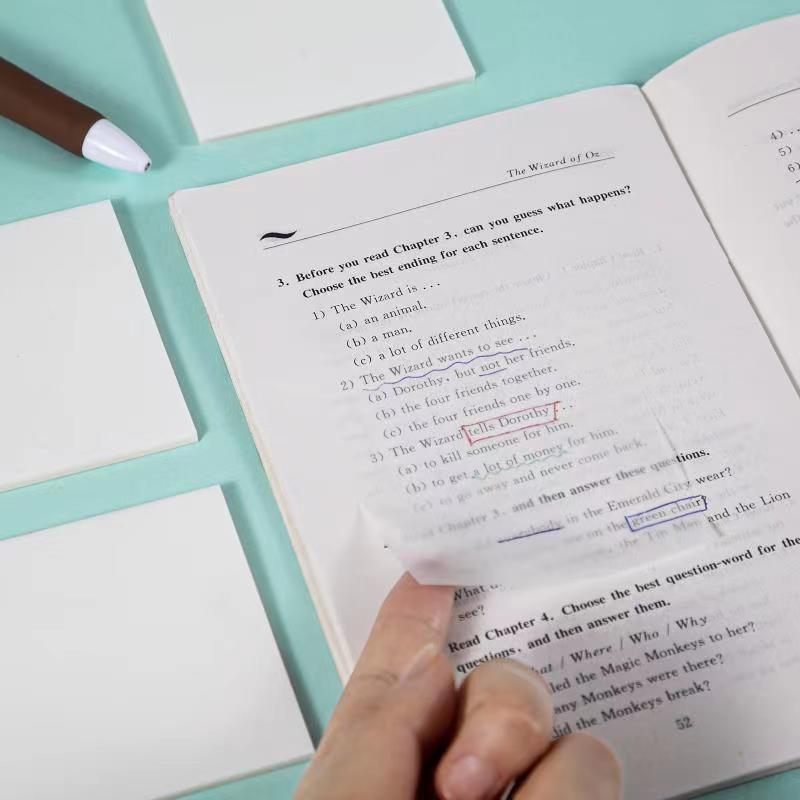 The Wizard of Oz
3. Before you read Chapter 3, can you guess what happens?
Choose the best ending for each sentence.
1) The Wizard is ...
(a) an animal.
(b) a man.
(c) a lot of different things.
2) The Wizard wants to see ...
(a) Dorothy, but not her friends.
(b) the four friends together.
(c) the four friends one by one.
3) The Wizard tells Dorothy ...
(a) to kill someone for him.
(b) to get a lot of money for him.
(c) to go away and never come back.
Read Chapter 3, and then answer these questions.
everybody in the Emerald City wear?
on the green chair?
the Tin Man and the Lion
What
see?
Read Chapter 4. Choose the best question-word for the
questions, and then answer them.
hat / Where / Who / Why
led the Magic Monkeys to her?
any Monkeys were there?
did the Monkeys break?
52
4) ..
5)
6)